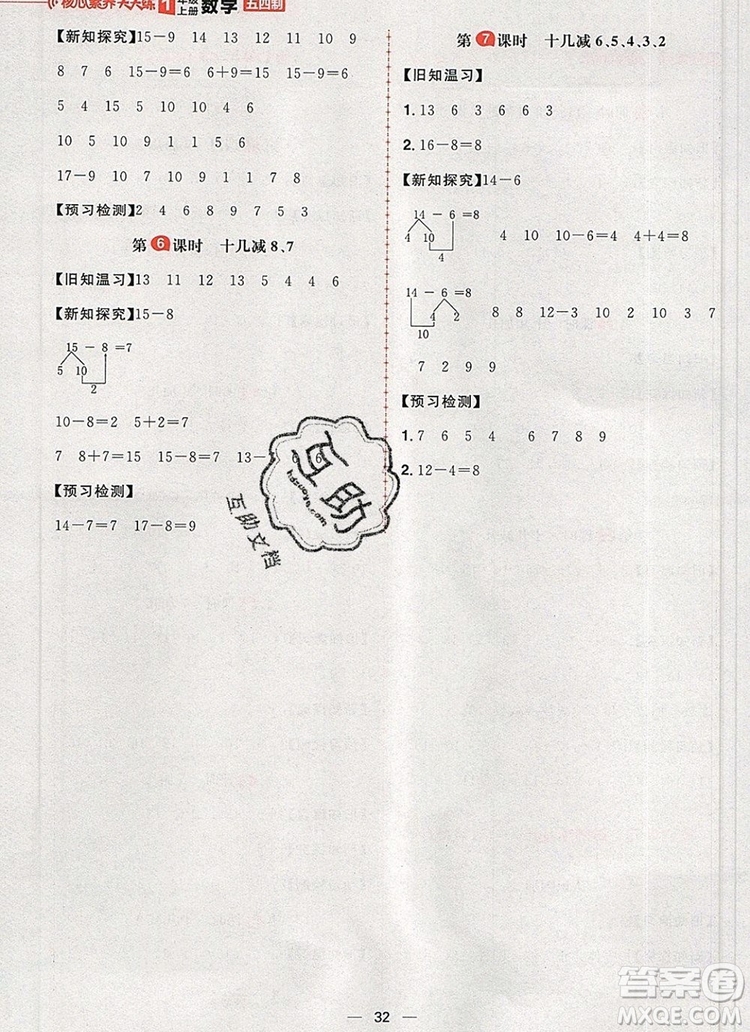 核心素养天天练 1年级上册 数学 五四制
【新知探究】15-9 9 10 11 12 13 10 9
8 7 6 15-9=6 6+9=15 15-9=6
5 4 15 10 5 4 1 5 6
10 5 10 9 1 1 5 6
17-9 10 7 10 9 1 1 7 8
【预习检测】2 4 6 8 9 7 5 3
第6课时 十几减8、7
【旧知温习】13 11 12 13 5 4 4 6
【新知探究】15-8
15-8=7
5 10
2
10-8=2 5+2=7
7 8+7=15 15-8=7 13- 6 6
【预习检测】
14-7=7 17-8=9
第7课时 十几减6、5、4、3、2
【旧知温习】
1.13 6 3 6 6 3
2.16-8=8
【新知探究】14-6
14-6=8
4 10 4 4 10-6=4 4+4=8
4
14-6=8
4 2 8 8 12-3 10 2 10 3 7
10
7 2 9 9
【预习检测】
1.7 6 5 4 6 7 8 9
2.12-4=8
互助
hdzuoye.com
互助文档
32
答案圈
MXQE.COM